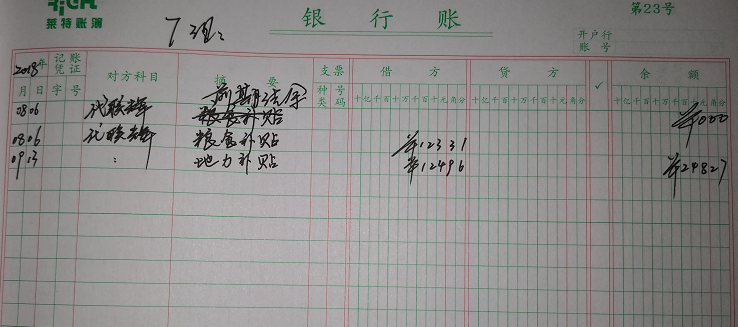 莱特账簿
银行账
第23号
7组:
开户行
账号
2018年 记账凭证 对方科目 摘要 支票 借方 贷方 ✓ 余额
月 日 字 号 种类 号码 十亿千百十万千百十元角分 十亿千百十万千百十元角分 十亿千百十万千百十元角分
前期结余
0806 代联辉 粮食补贴 ¥000
0806 代联辉 粮食补贴 ¥12331
0913 : 地力补贴 ¥12496 ¥24827